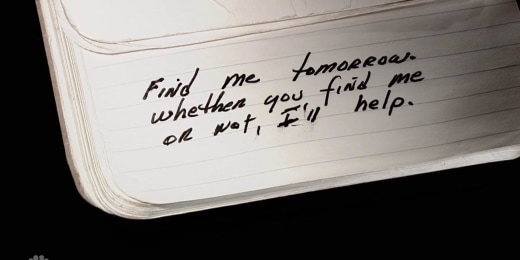 Find me tomorrow.
whether you find me
or not, I'll help.